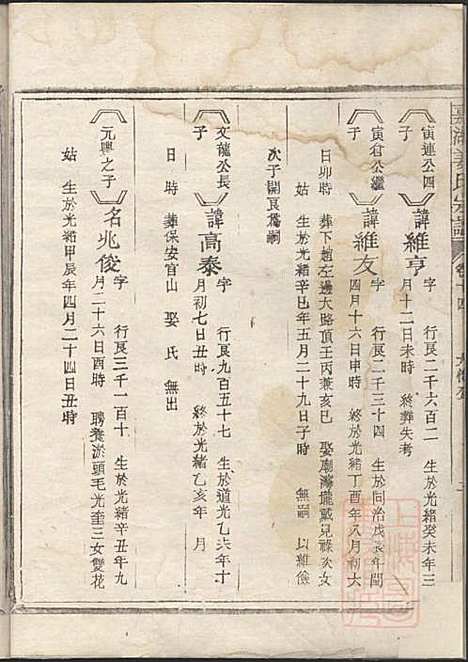 寅連公四子
諱維亨 字 行良二千六百二 生於光緒癸未年三
月十二日未時 終葬失考
寅倉公繼子
諱維友 字 行良二千三十四 生於同治戊辰年閏
四月十六日申時 終於光緒丁酉年八月初六
日卯時 葬下趙左邊大路頂壬丙兼亥巳 娶廟灣壠戴兒祿次女
姑 生於光緒辛巳年五月二十九日子時 無嗣 以維儉
次子開良為嗣
文龍公長子
諱高泰 字 行良九百五十七 生於道光乙未年十
月初七日丑時 終於光緒乙亥年 月
日時 葬保安官山 娶氏 無出
元興之子
名兆俊 字 行良三千一百十 生於光緒辛丑年九
月二十六日酉時 聘養淤頭毛光奎三女雙花
姑 生於光緒甲辰年四月二十四日丑時